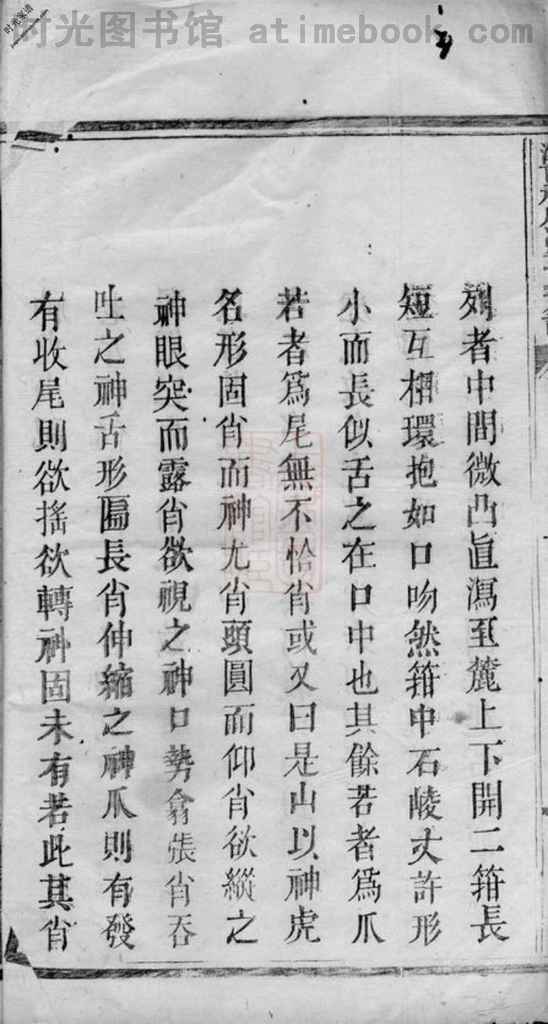 时光图书馆 atimebook.com
列者中間微凸直瀉至麓上下開二箝長
短互相環抱如口吻然箝中石崚丈許形
小而長似舌之在口中也其餘若者爲爪
若者爲尾無不恰肖或又曰是山以神虎
名形固肖而神尤肖頭圓而仰肖欲縱之
神眼突而露肖欲視之神口勢翕張肖吞
吐之神舌形匾長肖伸縮之神爪則有發
有收尾則欲搖欲轉神固未有若此其肖